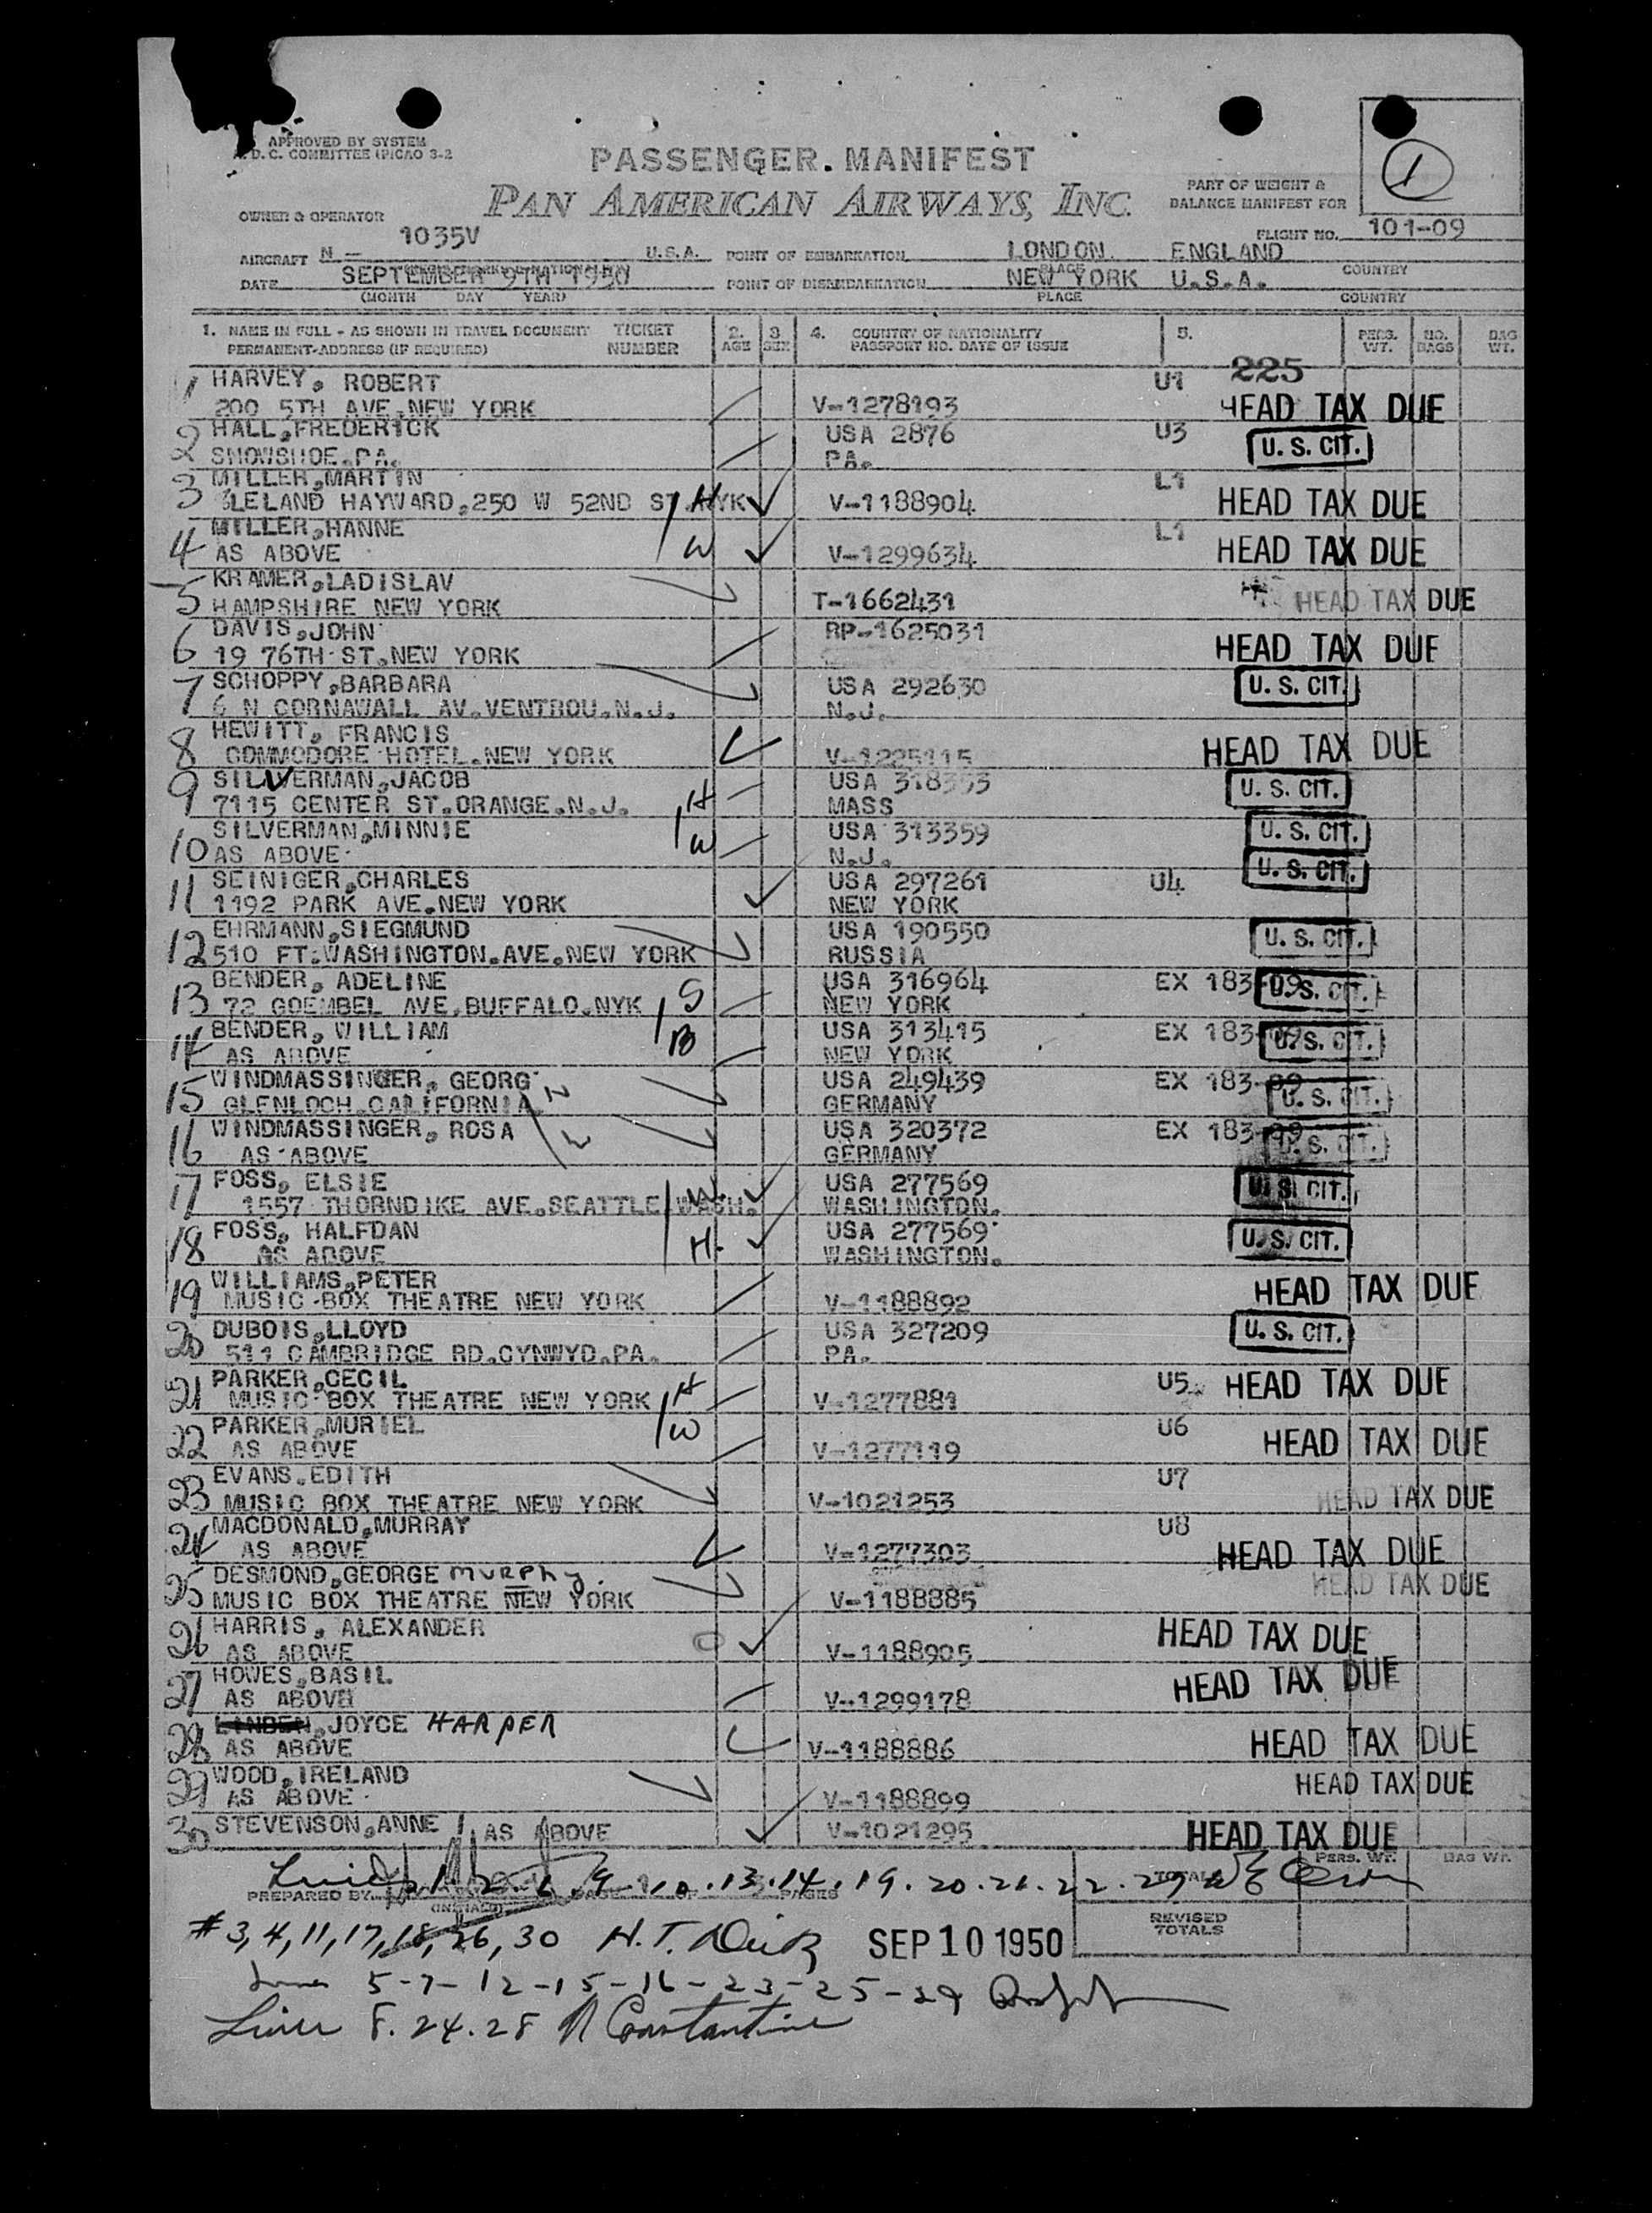 APPROVED BY SYSTEM
D. C. COMMITTEE (PICAO 3-2
PASSENGER. MANIFEST
PAN AMERICAN AIRWAYS, INC.
PART OF WEIGHT &
BALANCE MANIFEST FOR
1
OWNER & OPERATOR
FLIGHT NO. 101-09
AIRCRAFT N - 1035V U.S.A. POINT OF EMBARKATION LONDON ENGLAND
PLACE COUNTRY
DATE SEPTEMBER 9TH 1950 POINT OF DISEMBARKATION NEW YORK U.S.A.
(MONTH DAY YEAR) PLACE COUNTRY
1. NAME IN FULL - AS SHOWN IN TRAVEL DOCUMENT TICKET 2. 3 4. COUNTRY OF NATIONALITY 5. PERS. NO. BAG
PERMANENT-ADDRESS (IF REQUIRED) NUMBER AGE SEX PASSPORT NO. DATE OF ISSUE WT. BAGS WT.
1 HARVEY, ROBERT U1 225
200 5TH AVE.NEW YORK V-1278193 HEAD TAX DUE
2 HALL,FREDERICK USA 2876 U3 U. S. CIT.
SNOWSHOE.PA. PA.
3 MILLER,MARTIN L1
LELAND HAYWARD,250 W 52ND ST.NYK H V-1188904 HEAD TAX DUE
4 MILLER,HANNE L1
AS ABOVE W V-1299634 HEAD TAX DUE
5 KRAMER,LADISLAV
HAMPSHIRE NEW YORK T-1662431 HEAD TAX DUE
6 DAVIS,JOHN RP-1625031
19 76TH ST.NEW YORK HEAD TAX DUE
7 SCHOPPY,BARBARA USA 292630 U. S. CIT.
6 N CORNAWALL AV.VENTROU.N.J. N.J.
8 HEWITT, FRANCIS
COMMODORE HOTEL.NEW YORK V-1225115 HEAD TAX DUE
9 SILVERMAN,JACOB USA 318353 U. S. CIT.
7115 CENTER ST.ORANGE.N.J. H MASS
10 SILVERMAN,MINNIE USA 313359 U. S. CIT.
AS ABOVE W N.J.
11 SEINIGER,CHARLES USA 297261 U4 U. S. CIT.
1192 PARK AVE.NEW YORK NEW YORK
12 EHRMANN,SIEGMUND USA 190550 U. S. CIT.
510 FT.WASHINGTON.AVE.NEW YORK RUSSIA
13 BENDER, ADELINE USA 316964 EX 183-09 U. S. CIT.
72 GOEMBEL AVE.BUFFALO.NYK S NEW YORK
14 BENDER, WILLIAM B USA 313415 EX 183- U. S. CIT.
AS ABOVE NEW YORK
15 WINDMASSINGER, GEORG USA 249439 EX 183-09 U. S. CIT.
GLENLOCH.CALIFORNIA GERMANY
16 WINDMASSINGER, ROSA USA 320372 EX 183-09 U. S. CIT.
AS ABOVE GERMANY
17 FOSS, ELSIE USA 277569 U. S. CIT.
1557 THORNDIKE AVE.SEATTLE WASH. W WASHINGTON.
18 FOSS, HALFDAN USA 277569 U. S. CIT.
AS ABOVE H. WASHINGTON.
19 WILLIAMS,PETER
MUSIC-BOX THEATRE NEW YORK V-1188892 HEAD TAX DUE
20 DUBOIS,LLOYD USA 327209 U. S. CIT.
511 CAMBRIDGE RD.CYNWYD.PA. PA.
21 PARKER,CECIL U5 HEAD TAX DUE
MUSIC-BOX THEATRE NEW YORK H V-1277881
22 PARKER,MURIEL W U6 HEAD TAX DUE
AS ABOVE V-1277119
23 EVANS.EDITH U7
MUSIC BOX THEATRE NEW YORK V-1021253 HEAD TAX DUE
24 MACDONALD,MURRAY U8
AS ABOVE V-1277303 HEAD TAX DUE
25 DESMOND,GEORGE Murphy. HEAD TAX DUE
MUSIC BOX THEATRE NEW YORK V-1188885
26 HARRIS, ALEXANDER HEAD TAX DUE
AS ABOVE V-1188905
27 HOWES,BASIL HEAD TAX DUE
AS ABOVE V-1299178
28 LANDEN,JOYCE HARPER
AS ABOVE V-1188886 HEAD TAX DUE
29 WOOD,IRELAND HEAD TAX DUE
AS ABOVE V-1188899
30 STEVENSON,ANNE AS ABOVE V-1021295 HEAD TAX DUE
1. 2. 6. 9. 10. 13. 14. 19. 20. 21. 22. 27
PREPARED BY PAGES TOTALS PERS. WT. BAG WT.
(INITIALS)
#3,4,11,17,18,26,30 H.T. SEP 10 1950 REVISED
TOTALS
5-7-12-15-16-23-25-29
Lines 8. 24. 28 N Constantine